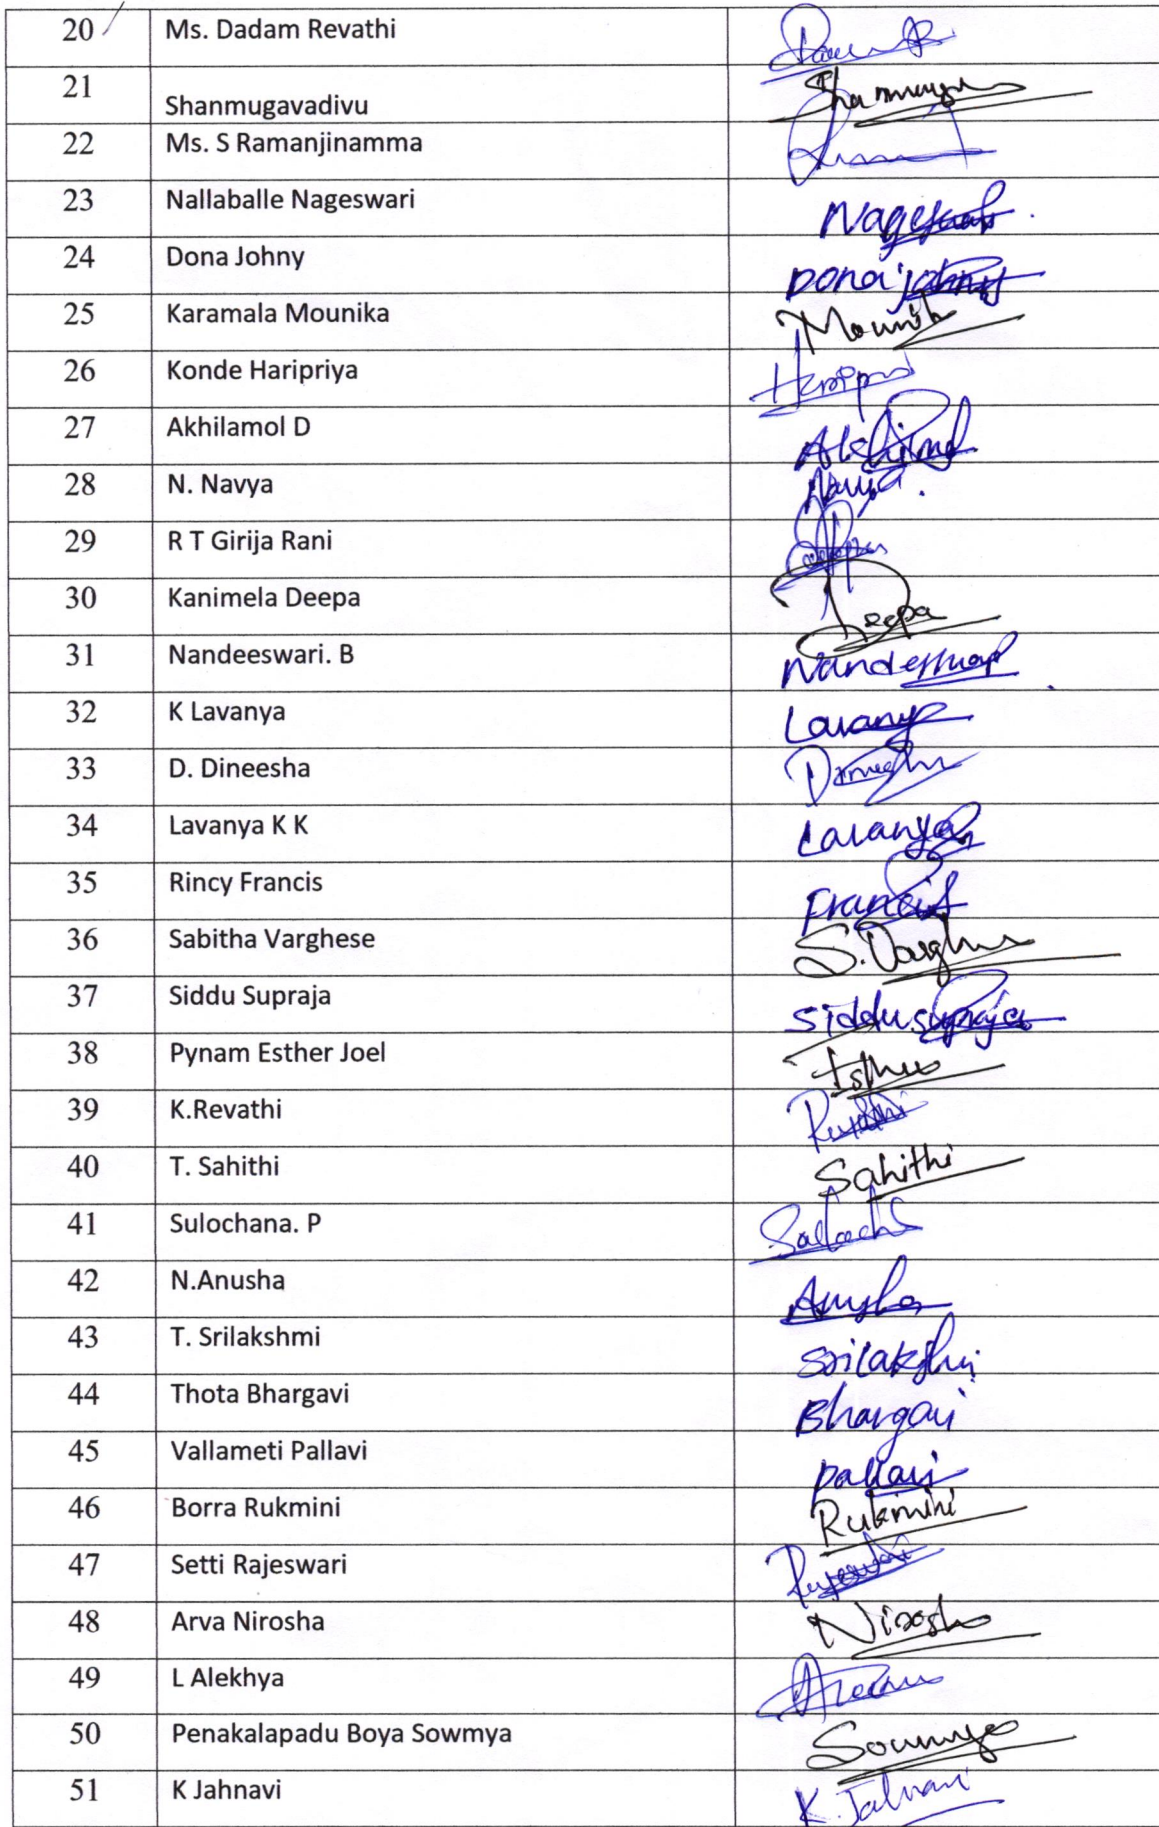 20 Ms. Dadam Revathi
21 Shanmugavadivu
22 Ms. S Ramanjinamma
23 Nallaballe Nageswari
24 Dona Johny Dona Johny
25 Karamala Mounika
26 Konde Haripriya
27 Akhilamol D
28 N. Navya
29 R T Girija Rani
30 Kanimela Deepa Deepa
31 Nandeeswari. B
32 K Lavanya Lavanya
33 D. Dineesha
34 Lavanya K K Lavanya
35 Rincy Francis Francis
36 Sabitha Varghese
37 Siddu Supraja Siddu Supraja
38 Pynam Esther Joel
39 K.Revathi
40 T. Sahithi Sahithi
41 Sulochana. P
42 N.Anusha Anusha
43 T. Srilakshmi
44 Thota Bhargavi Bhargavi
45 Vallameti Pallavi Pallavi
46 Borra Rukmini Rukmini
47 Setti Rajeswari
48 Arva Nirosha Nirosha
49 L Alekhya
50 Penakalapadu Boya Sowmya Sowmya
51 K Jahnavi K. Jahnavi